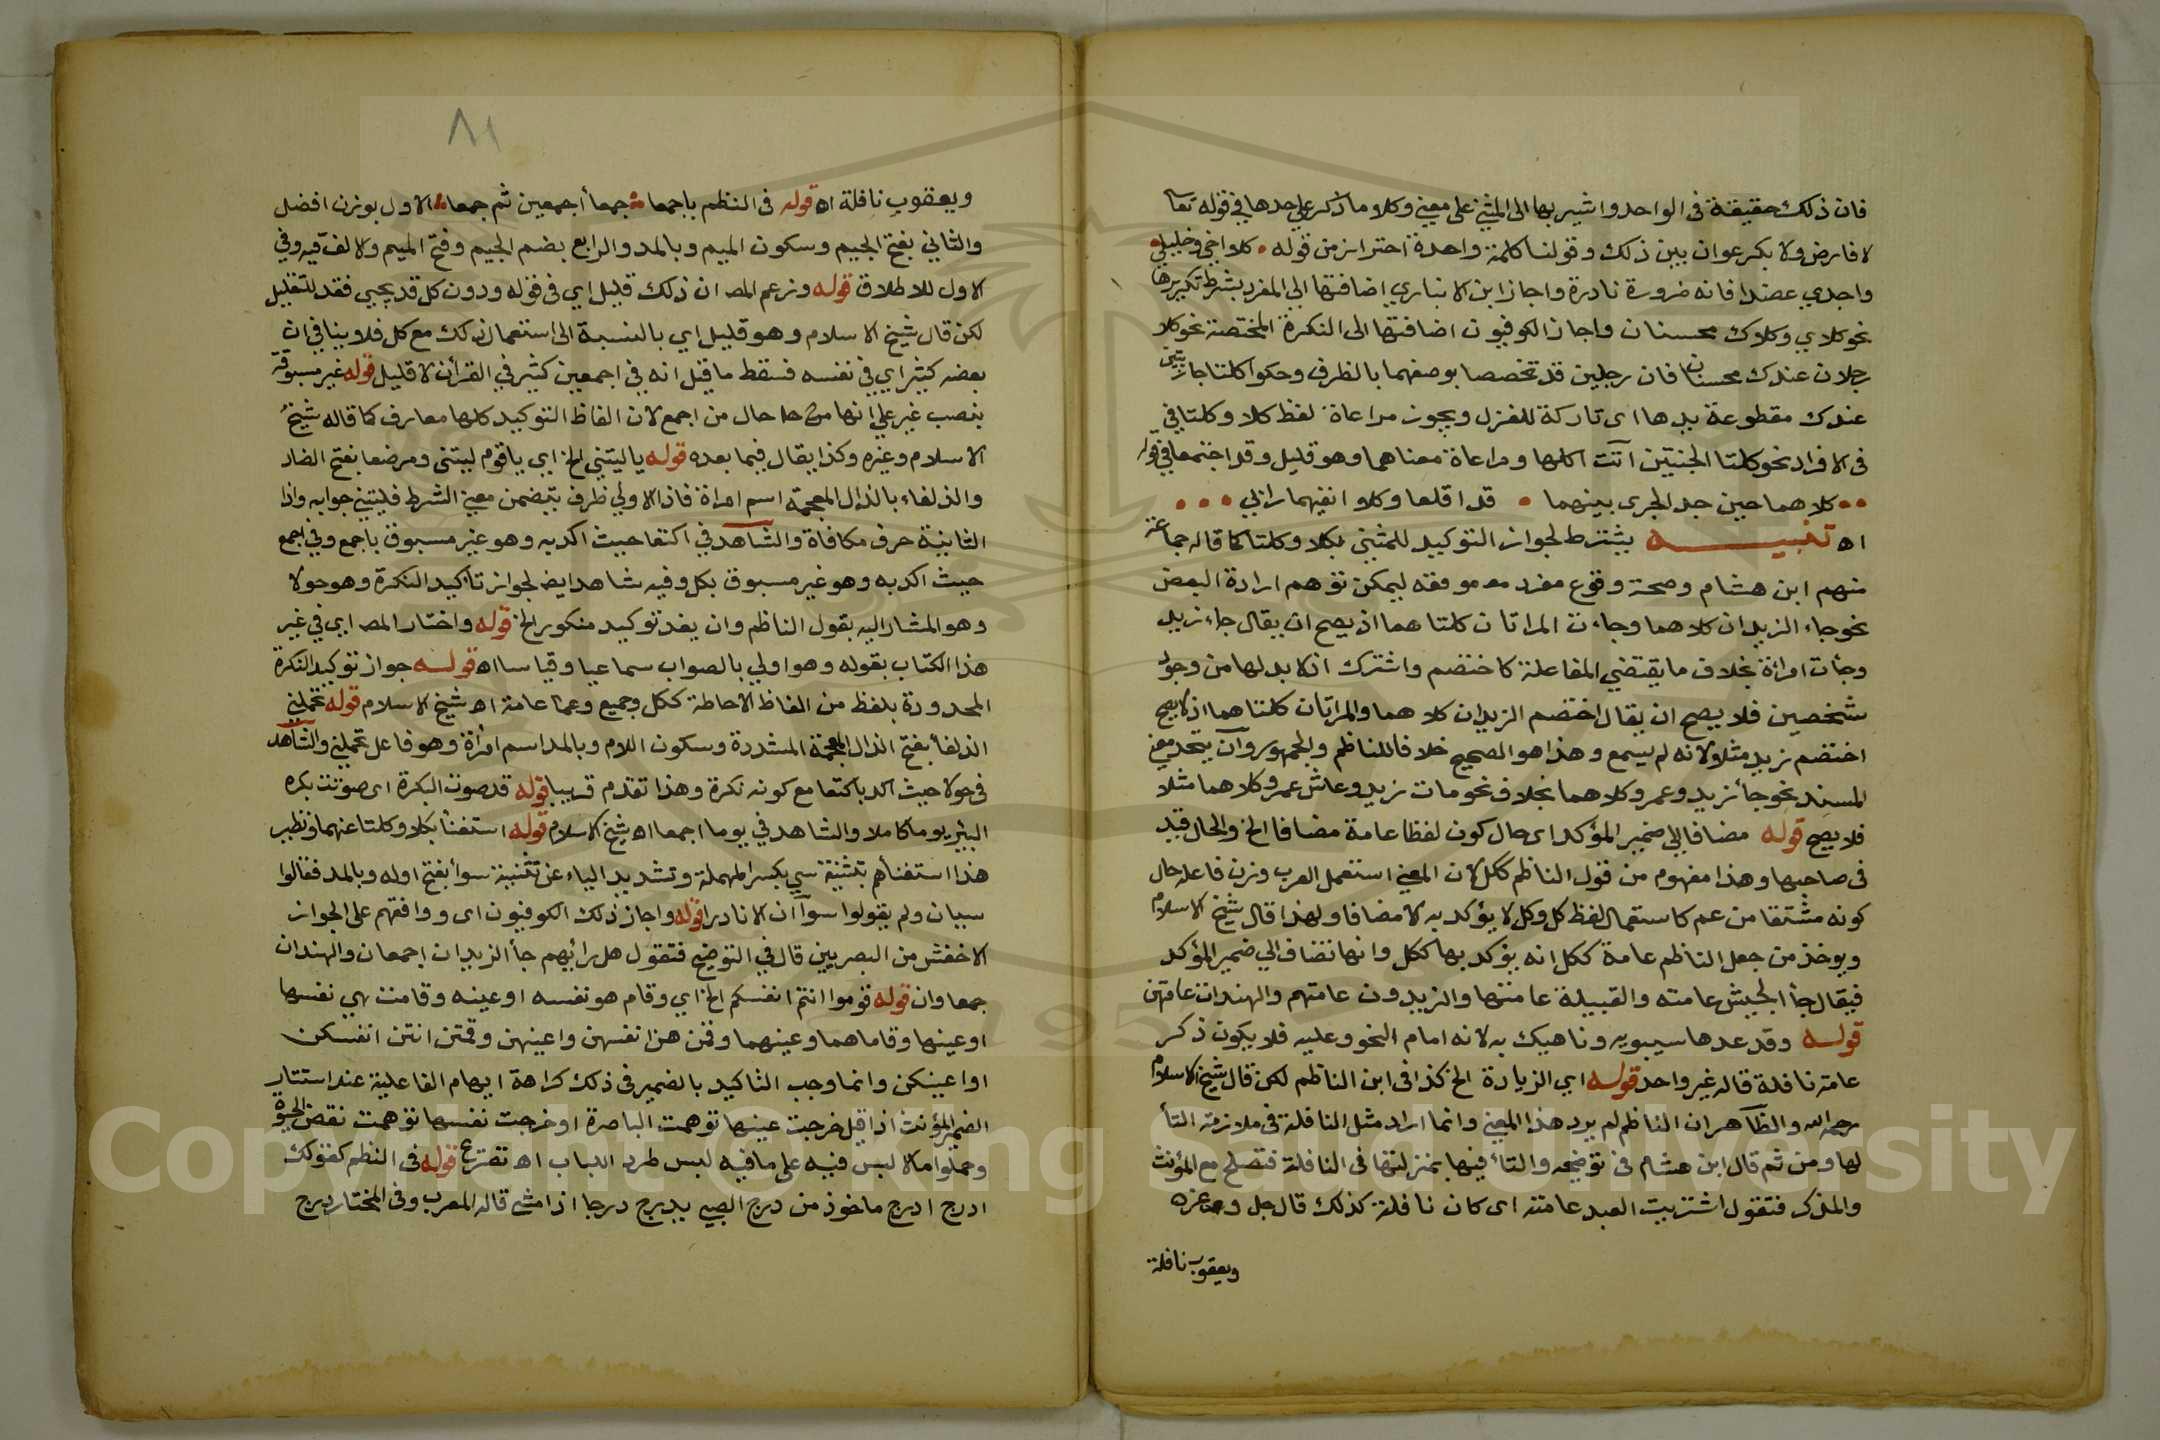 فان ذلك حقيقة في الواحد واشير بها الى المثنى على معنى وكلا وما ذكر على حدها في قوله تعا
لا فارض ولا بكر عوان بين ذلك وقولنا كلمة واحدة احتراز من قوله • كلا اخي وخليلي •
واجدي عضدا فانه ضرورة نادرة واجاز ابن الانباري اضافتها الى المفرد بشرط تكريرها
نحو كلاي وكلاك محسنان واجاز الكوفيون اضافتها الى النكرة المختصة نحو كلا
رجلان عندك محسنان فان رجلين قد تخصصا بوصفهما بالظرف وحكوا كلتا جاريتين
عندك مقطوعة يدها اى تاركة للغزل ويجوز مراعاة لفظ كلا وكلتا في
فى الافراد نحو كلتا الجنتين آتت اكلها ومراعاة معناهما وهو قليل وقد اجتمعا في قوله
•• كلاهما حين جد الجرى بينهما • قد اقلعا وكلا انفيهما رابي •••
اه تنبيه يشترط لجواز التوكيد للمثنى بكلا وكلتا كما قاله جماعة
منهم ابن هشام وصحة وقوع مفرد معه موقفه ليمكن توهم ارادة البعض
نحو جاء الزيدان كلاهما وجاءت المراتان كلتاهما اذ يصح ان يقال جاء زيد
وجات امراة بخلاف ما يقتضي المفاعلة كاختصم واشترك اذ لا بد لها من وجود
شخصين فلا يصح ان يقال اختصم الزيدان كلاهما والمراتان كلتاهما اذ لا يصح
اختصم زيد مثلا ولانه لم يسمع وهذا هو الصحيح خلافا للناظم والجمهور وان يتحد معنى
المسند نحو جأ زيد وعمرو كلاهما بخلاف نحو مات زيد وعاش عمرو كلاهما مثلا
فلا يصح قوله مضافا الى ضمير المؤكد اى حال كون لفظ عامة مضافا الخ والحال قيد
فى صاحبها وهذا مفهوم من قول الناظم ككل لان المعنى استعمل العرب وزن فاعله حال
كونه مشتقا من عم كاستعمال لفظ كل وكل لا يؤكد به الا مضافا ولهذا قال شيخ الاسلام
ويوخذ من جعل الناظم عامة ككل انه يؤكد بها ككل وانها تضاف الى ضمير المؤكد
فيقال جأ الجيش عامته والقبيلة عامتها والزيدون عامتهم والهندات عامتهن
قوله وقد عدها سيبويه وناهيك به لانه امام النحو وعليه فلا يكون ذكر
عامة نافلة قاله غير واحد قوله اي الزيادة الخ كذا في ابن الناظم لكن قال شيخ الاسلام
رحمه الله والظاهر ان الناظم لم يرد هذا المعنى وانما اراد مثل النافلة فى ملازمة التأ
لها ومن ثم قال ابن هشام في توضيحه والتأ فيها بمنزلتها فى النافلة فتصلح مع المؤنث
والمذكر فتقول اشتريت العبد عامته اى كان نافلة كذلك قال جل وعزه
ويعقوب نافلة
٨١
ويعقوب نافلة اه قوله فى النظم باجمعا • جمعا أجمعين ثم جمعا • الاول بوزن افضل
والثاني بفتح الجيم وسكون الميم وبالمد والرابع بضم الجيم وفتح الميم والالف فيه وفي
الاول للاطلاق قوله وزعم المص ان ذلك قليل اي في قوله ودون كل قد يجي فقد للتقليل
لكن قال شيخ الاسلام وهو قليل اي بالنسبة الى استعمال ذلك مع كل فلا ينافي ان
بعضه كثير اي في نفسه فسقط ما قيل انه في اجمعين كثير في القرأن لا قليل قوله غير مسبوقة
بنصب غير على انها حال من اجمع لان الفاظ التوكيد كلها معارف كما قاله شيخ
الاسلام وغيره وكذا يقال فيما بعده قوله يا ليتني الخ اي يا قوم ليتنى ومرضعا بفتح الضاد
والذلفاء بالذال المعجمة اسم امراة فاذا الاولي ظرف يتضمن معنى الشرط فليتني جوابه واذا
الثانية حرف مكافاة والشاهد في اكتعا حيث اكد به وهو غير مسبوق باجمع وفي اجمع
حيث اكد به وهو غير مسبوق بكل وفيه شاهد ايضا لجواز تأكيد النكرة وهو حولا
وهو المشار اليه بقول الناظم وان يفد توكيد منكور الخ قوله واختار المص اي في غير
هذا الكتاب بقوله وهو اولي بالصواب سماعيا وقياسا اه قوله جواز توكيد النكرة
المحدودة بلفظ من الفاظ الاحاطة ككل وجميع وعما عامة اه شيخ الاسلام قوله تحملني
الذلفأ بفتح الذال المعجمة المشددة وسكون اللام وبالمد اسم امرأة وهو فاعل تحملني والشاهد
فى حولا حيث اكد باكتعا مع كونه نكرة وهذا تقدم قريبا قوله قد صوت البكرة اى صوتت بكره
البئر يوما كاملا والشاهد في يوما اجمعا اه شيخ الاسلام قوله استغنأ بكلا وكلتا عنهما ونظير
هذا استغنأهم بتثنية سي بكسر المهملة وتشديد الياء عن تثنية سوأ بفتح اوله وبالمد فقالوا
سيان ولم يقولوا سوآان الا نادرا قوله واجاز ذلك الكوفيون اى ووافقهم على الجواز
الاخفش من البصريين قال في التوضيح فتقول هل رأيهم جأ الزيدان اجمعان والهندان
جمعاوان قوله قوموا انتم انفسكم الخ اي وقام هو نفسه او عينه وقامت هي نفسها
او عينها وقاما هما وعينهما وقمن هن انفسهن واعينهن وقمتن انتن انفسكن
او اعينكن وانما وجب التاكيد بالضمير فى ذلك كراهة ايهام الفاعلية عند استتار
الضمير المؤنث اذ اقيل خرجت عينها توهمت الباصرة او خرجت نفسها توهمت نفس الحيوة
وحملوا ما لا لبس فيه على ما فيه لبس طردا للباب اه قوله فى النظم كقولك
ادرج ادرج ماخوذ من درج الصبي يدرج درجا اذا مشى قاله المعرب وفى المختار درج